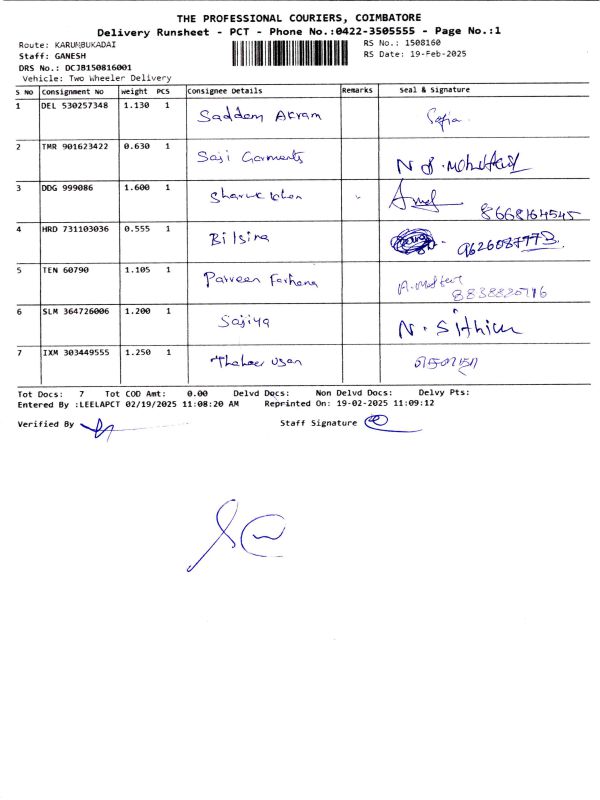 THE PROFESSIONAL COURIERS, COIMBATORE
Delivery Runsheet - PCT - Phone No.:0422-3505555 - Page No.:1
Route: KARUMBUKADAI RS No.: 1508160
Staff: GANESH RS Date: 19-Feb-2025
DRS No.: DCJB150816001
Vehicle: Two Wheeler Delivery
S NO Consignment No weight PCS Consignee Details Remarks Seal & Signature
1 DEL 530257348 1.130 1 Saddam Akram Safia
2 TMR 901623422 0.630 1 Saji Garments
3 DDG 999086 1.600 1 Sharuk khan 8668164545
4 HRD 731103036 0.555 1 Bilsina 9626087773
5 TEN 60790 1.105 1 Parveen Farhana
6 SLM 364726006 1.200 1 Sajiya N. Sithick
7 IXM 303449555 1.250 1
Tot Docs: 7 Tot COD Amt: 0.00 Delvd Docs: Non Delvd Docs: Delvy Pts:
Entered By :LEELAPCT 02/19/2025 11:08:20 AM Reprinted On: 19-02-2025 11:09:12
Verified By Staff Signature